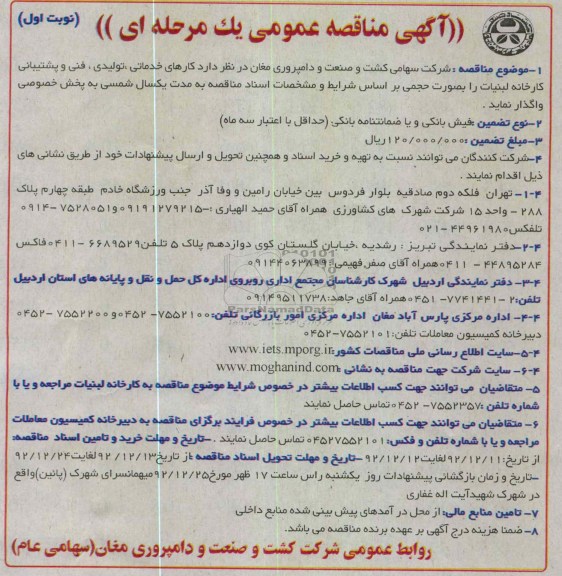 ((آگهی مناقصه عمومی یك مرحله ای ))
(نوبت اول)
۱-موضوع مناقصه : شرکت سهامی کشت و صنعت و دامپروری مغان در نظر دارد کارهای خدماتی ،تولیدی ، فنی و پشتیبانی
کارخانه لبنیات را بصورت حجمی بر اساس شرایط و مشخصات اسناد مناقصه به مدت یکسال شمسی به پخش خصوصی
واگذار نماید .
۲-نوع تضمین :فیش بانکی و یا ضمانتنامه بانکی (حداقل با اعتبار سه ماه)
۳-مبلغ تضمین :۱۲۰/۰۰۰/۰۰۰ریال
۴-شرکت کنندگان می توانند نسبت به تهیه و خرید اسناد و همچنین تحویل و ارسال پیشنهادات خود از طریق نشانی های
ذیل اقدام نمایند .
۴-۱- تهران فلکه دوم صادقیه بلوار فردوس بین خیابان رامین و وفا آذر جنب ورزشگاه خادم طبقه چهارم پلاک
۲۸۸ - واحد ۱۵ شرکت شهرک های کشاورزی همراه آقای حمید الهیاری :-۰۹۱۹۱۲۷۹۲۱۵و۷۵۲۸۰۵۱ -۰۹۱۴
تلفکس:۴۴۹۶۱۹۸۰ -۰۲۱
۴-۲-دفتر نمایندگی تبریز : رشدیه ،خیابان گلستان کوی دوازدهم پلاک ۵ تلفن:۶۶۸۹۵۲۹-۰۴۱۱فاکس
۴۴۸۹۵۲۸۴ - ۰۴۱۱همراه آقای صفر فهیمی:۰۹۱۴۴۰۶۳۸۹۹
۴-۳- دفتر نمایندگی اردبیل شهرک کارشناسان مجتمع اداری روبروی اداره کل حمل و نقل و پایانه های استان اردبیل
تلفن:۲ -۷۷۴۱۴۴۱- ۰۴۵۱ همراه آقای جاهد:۰۹۱۴۹۵۱۱۷۳۸
۴-۴- اداره مرکزی پارس آباد مغان اداره مرکزی امور بازرگانی تلفن:۷۵۵۲۱۰۰-۰۴۵۲ و۷۵۵۲۲۰۰ -۰۴۵۲
دبیرخانه کمیسیون معاملات تلفن:۷۵۵۲۱۰۱-۰۴۵۲
۴-۵-سایت اطلاع رسانی ملی مناقصات کشور:www.iets.mporg.ir
۴-۶- سایت شرکت جهت مناقصه به نشانی :www.moghanind.com
۵- متقاضیان می توانند جهت کسب اطلاعات بیشتر در خصوص شرایط موضوع مناقصه به کارخانه لبنیات مراجعه و یا با
شماره تلفن :۷۵۵۲۳۵۷- ۰۴۵۲ تماس حاصل نمایند
۶- متقاضیان می توانند جهت کسب اطلاعات بیشتر در خصوص فرایند برگزای مناقصه به دبیرخانه کمیسیون معاملات
مراجعه و یا با شماره تلفن و فکس: ۰۴۵۲۷۵۵۲۱۰۱ تماس حاصل نمایند . -تاریخ و مهلت خرید و تامین اسناد مناقصه:
از تاریخ:۹۲/۱۲/۱۱لغایت۹۲/۱۲/۱۲ -تاریخ و مهلت تحویل اسناد مناقصه :از تاریخ۹۲/۱۲/۱۳لغایت۹۲/۱۲/۲۴
-تاریخ و زمان بازگشائی پیشنهادات روز یکشنبه راس ساعت ۱۷ ظهر مورخ۹۲/۱۲/۲۵میهمانسرای شهرک (پائین)واقع
در شهرک شهیدآیت اله غفاری
۷- تامین منابع مالی: از محل در آمدهای پیش بینی شده منابع داخلی
۸- ضمنا هزینه درج آگهی بر عهده برنده مناقصه می باشد.
روابط عمومی شرکت کشت و صنعت و دامپروری مغان(سهامی عام)